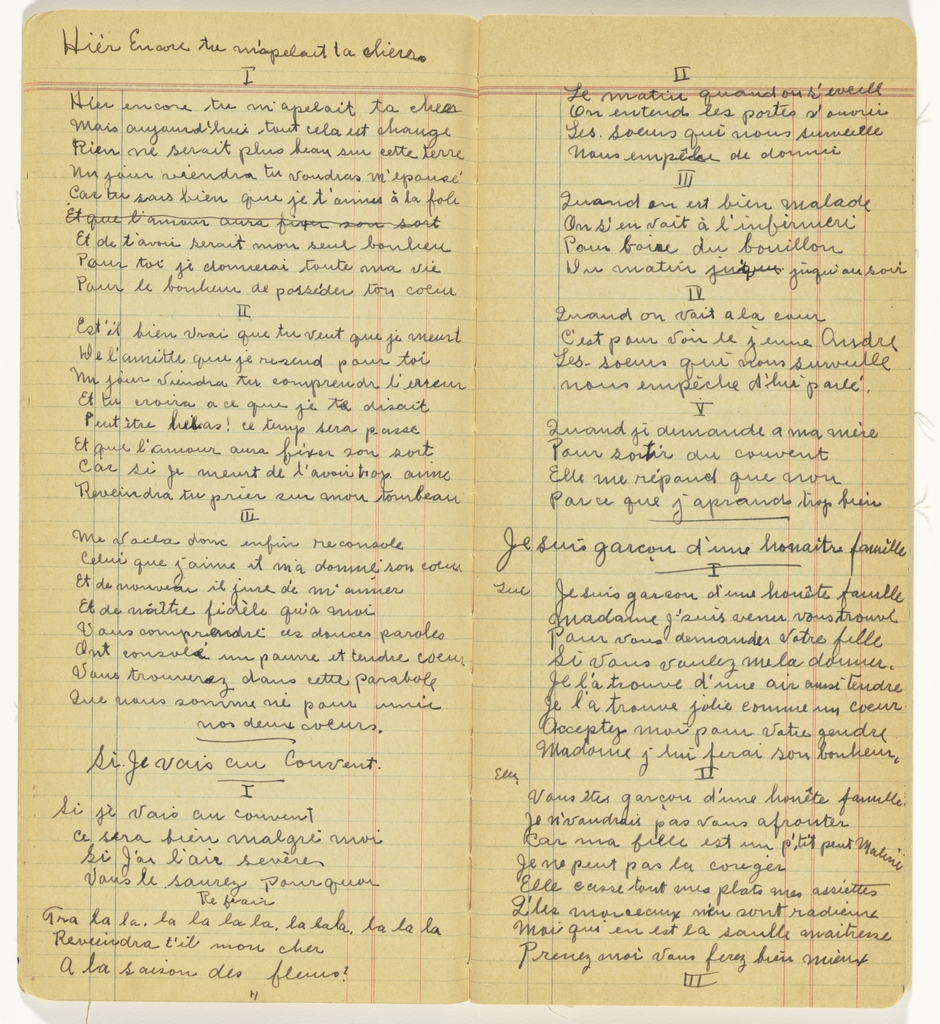 Hier Encore tu m'apelait ta chères
I
Hier encore tu m'apelait ta cher
Mais aujourd'hui tout cela est change
Rien ne serait plus beau sur cette terre
Un jour viendra tu voudras m'épousé
Car tu sais bien que je t'aimes à la foli
Et que l'amour aura fixer son sort
Et de t'avoir serait mon seul bonheur
Pour toi je donnerai toute ma vie
Pour le bonheur de posséder ton coeur
II
Est'il bien vrai que tu veut que je meurt
De l'amitte que je resend pour toi
Un jour viendra tu comprendr l'erreur
Et tu croira a ce que je te disait
Peut être hélas! ce temp sera passe
Et que l'amour aura fixer son sort
Car si je meurt de l'avoir trop aime
Reveindra tu prier sur mon tombeau
III
Me voila donc enfin reconsole
Celui que j'aime it m'a donné son coeur
Et de nouveau il jure de m'aimer
Et de m'aître fidèle qu'a moi
Vous comprendré ces douces paroles
Ont consolé un pauvre et tendre coeur
Vous trouverez dans cette parabole
Que nous somme né pour unir
nos deux coeurs.
Si Je vais au Couvent.
I
Si je vais au couvent
Ce sera bien malgré moi
Si J'ai l'air sevères
Vous le saurez pourquoi
Refrair
Tra la la, la la la la, la lala, la la la
Reveindra t'il mon cher
A la saison des fleurs?
II
Le matin quand on s'eveill
On entend les portes s'ouvrir
Les soeurs qui nous surveille
Nous empêche de dormir
III
Quand on est bien malade
On s'en vait à l'infirmeri
Pour boire du bouillon
Du matin jusque jusqu'au soir
IV
Quand on vait a la cour
C'est pour voir le jeune André
Les soeurs qui nous surveille
nous empêche d'lui parlé.
V
Quand je demande a ma mère
Pour sortir du couvent
Elle me répond que non
Parce que j'aprands trop bien
Je suis garçon d'une honaitre famille
I
Lui Je suis garcon d'une honête famille
Madame j'suis venu vous trouvé
Pour vous demander votre fille
Si vous voulez me la donner.
Je l'a trouve d'une air aussi tendre
Je l'a trouve jolie comme un coeur
Acceptez moi pour votre gendre
Madame j'lui ferai son bonheur,
II
Elle Vous êtes garcon d'une honête famille
Je n'vaudrais pas vous afronter
Car ma fille est un p'tit peut Maline
Je ne peut pas la coriger
Elle casse tout mes plats mes assiettes
L'les morceaux m'en sont radieux
Moi qui en est la saulle maitresse
Prenez moi vous ferez bien mieux
III